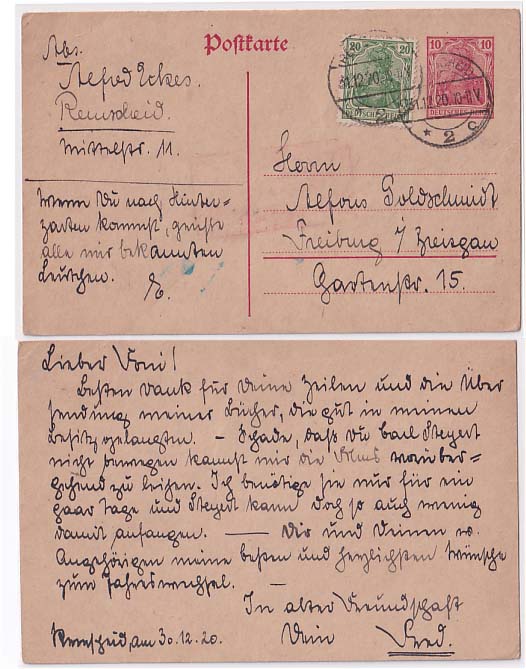 Abs.
Alfred Eckes.
Remscheid.
Mittelstr. 11.
Wenn Du nach Hinter=
zarten kommst, grüsse
alle mir bekannten
Leutchen.
Postkarte
20
20
10
10
DEUTSCHES REICH
DEUTSCHES REICH
31.12.20
31.12.20. 10-11 V.
* 2 c
Herrn
Alfons Goldschmidt
Freiburg i/ Breisgau
Gartenstr. 15.
Lieber Foni!
Besten Dank für Deine Zeilen und die Über
sendung meiner Bücher, die gut in meinen
Besitz gelangten. — Schade, daß Du Carl Steyert
nicht bewegen kannst mir die Films vorüber=
gehend zu leihen. Ich benötige sie nur für ein
paar Tage und Steyert kann doch so auch wenig
damit anfangen. — Dir und Deinen w.
Angehörigen meine besten und herzlichsten Wünsche
zum Jahreswechsel. —
In alter Freundschaft
Remscheid, am 30.12.20.
Dein Fred.